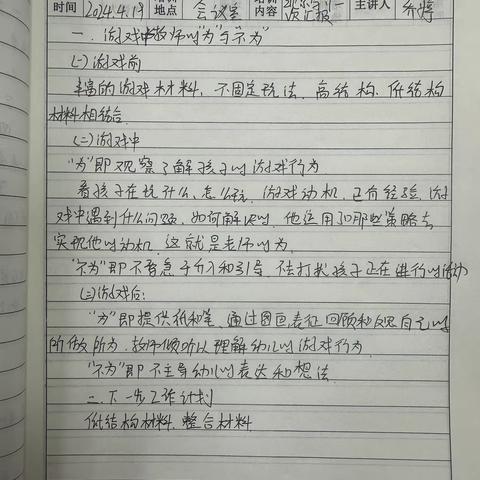 时间 2024.4.19 地点 会议室 培训内容 汇报 主讲人
一、游戏中教师的"为"与"不为"
(一)游戏前
丰富的游戏材料，不固定玩法，高结构、低结构
材料相结合
(二)游戏中
"为"即观察了解孩子的游戏行为
看孩子在玩什么、怎么玩，游戏动机，已有经验，游
戏中遇到什么问题，如何解决的，他运用了哪些策略去
实现他的动机，这就是老师的为
"不为"即不着急于介入和引导，不去打扰孩子正在进行的活动
(三)游戏后：
"为"即提供纸和笔，通过图画表征回顾和反思自己的
所做所为，教师倾听以理解幼儿的游戏行为
"不为"即不主导幼儿的表达和想法
二、下一步工作计划
低结构材料，整合材料